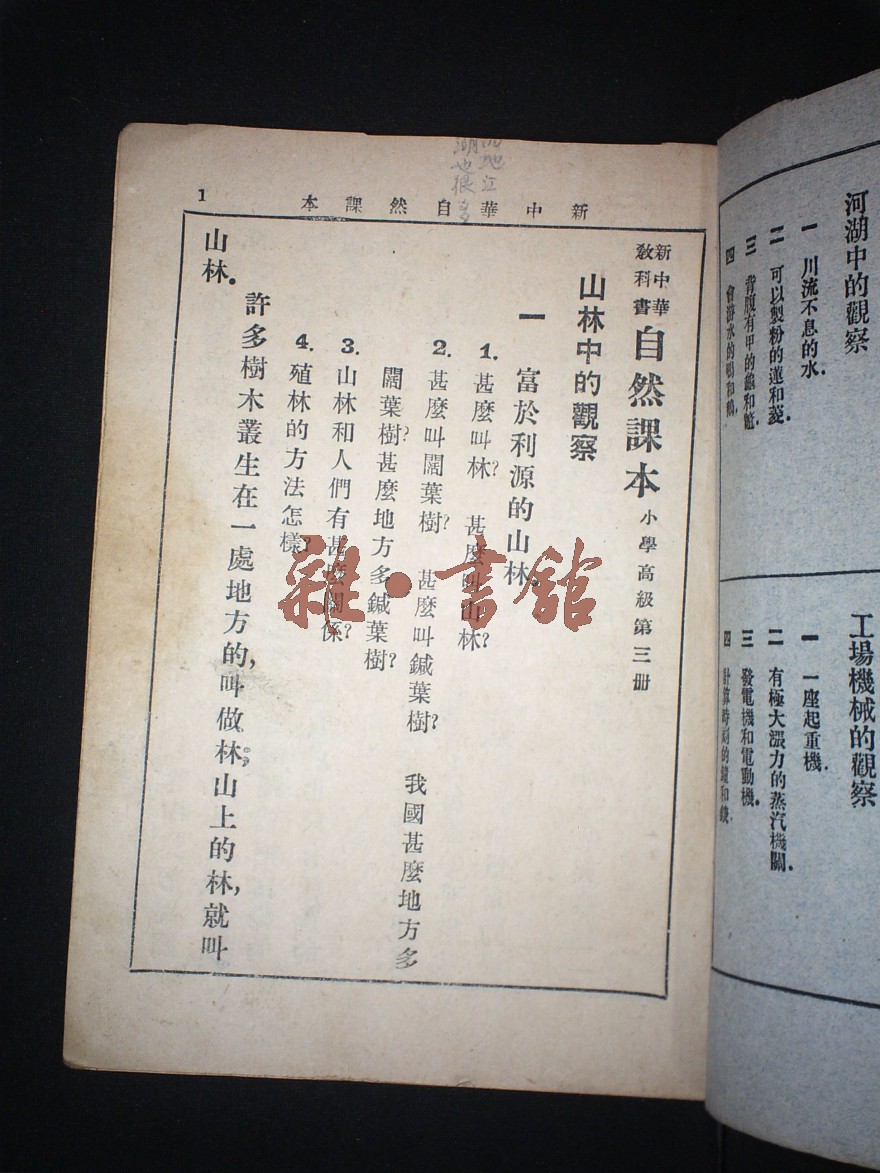 河湖中的觀察
一 川流不息的水.
二 可以製粉的蓮和菱.
三 背腹有甲的龜和鼈.
四 會游水的鴨和鵝.
工場機械的觀察
一 一座起重機.
二 有極大漲力的蒸汽機關.
三 發電機和電動機.
四 計算時刻的鐘和錶.
新中華自然課本
1
湖也很多
新中華
教科書
自然課本 小學高級第三册
山林中的觀察
一 富於利源的山林.
1. 甚麼叫林? 甚麼叫山林?
2. 甚麼叫闊葉樹? 甚麼叫鍼葉樹? 我國甚麼地方多
闊葉樹?甚麼地方多鍼葉樹?
3. 山林和人們有甚麼關係?
4. 殖林的方法怎樣?
許多樹木叢生在一處地方的,叫做林;山上的林,就叫
山林.
雜·書館